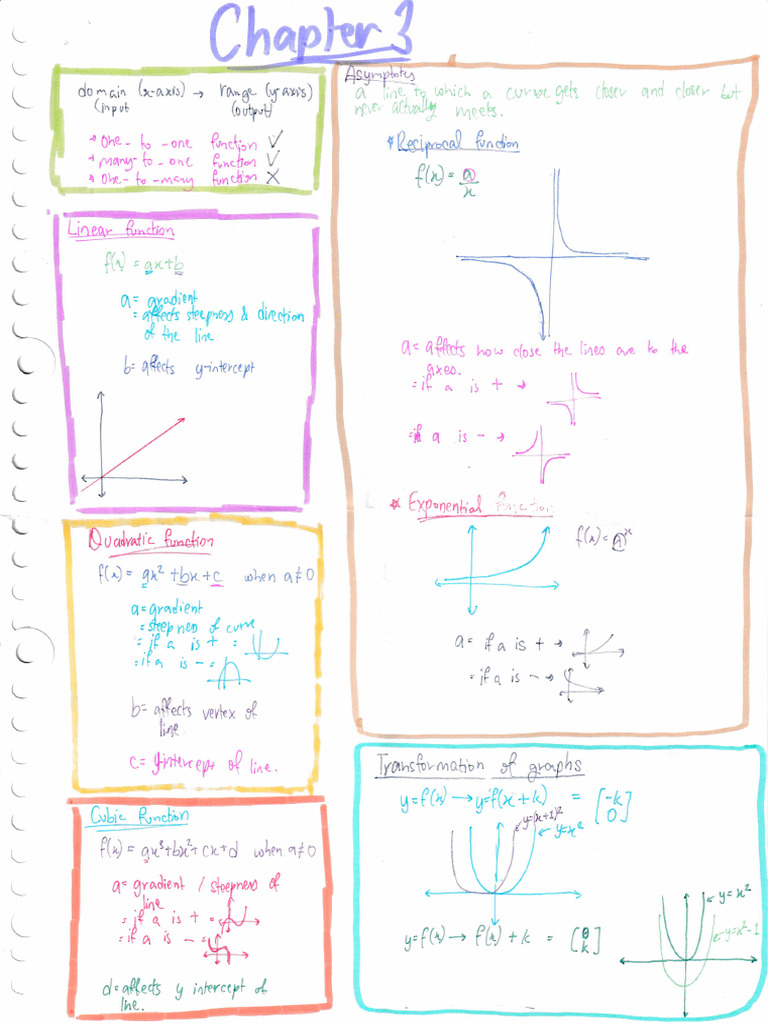 Chapter 3
domain (x-axis) → range (y-axis)
(input (output)
→ one-to-one function ✓
→ many-to-one function ✓
→ one-to-many function ✗
Linear function
f(x) = ax+b
a = gradient
= affects steepness & direction
of the line
b= affects y-intercept
Quadratic function
f(x) = ax² + bx + c when a≠0
a = gradient
= steepness of curve
= if a is + =
= if a is - =
b= affects vertex of
line.
c= y-intercept of line.
Cubic function
f(x) = ax³+bx²+cx+d when a≠0
a= gradient / steepness of
line
= if a is + =
= if a is - =
d= affects y intercept of
line.
Asymptotes
a line to which a curve gets closer and closer but
never actually meets.
* Reciprocal function
f(x) = a/x
a = affects how close the lines are to the
axes.
= if a is + →
= if a is - →
* Exponential function
f(x) = a^x
a = if a is + →
= if a is - →
Transformation of graphs
y=f(x) → y=f(x+k) = [-k 0]
y=(x+1)²
y=x²
y=f(x) → f(x)+k = [0 k]
y=x²
y=x²-1